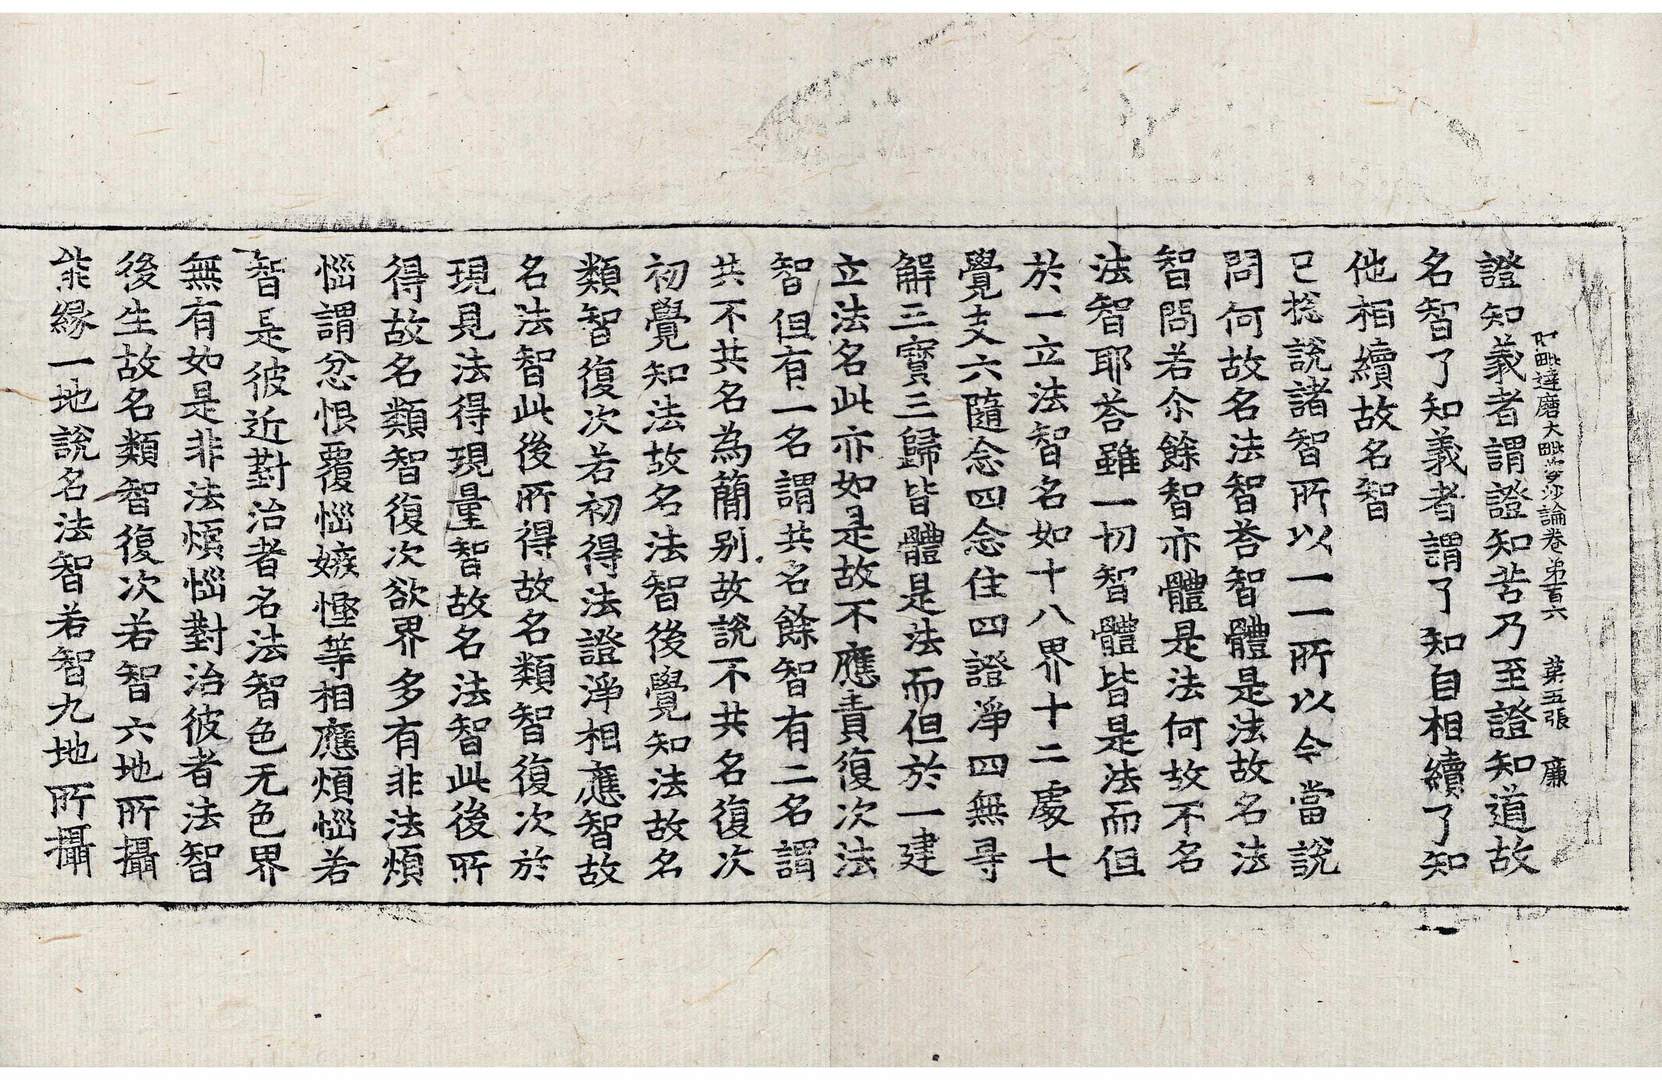 阿毗達磨大毗婆沙論卷第一百六　第五張　廉
證知義者謂證知苦乃至證知道故
名智了知義者謂了知自相續了知
他相續故名智
已捴說諸智所以一一所以今當說
問何故名法智荅智體是法故名法
智問若尒餘智亦體是法何故不名
法智耶荅雖一切智體皆是法而但
於一立法智名如十八界十二處七
覺支六隨念四念住四證淨四無㝵
解三寶三歸皆體是法而但於一建
立法名此亦如是故不應責復次法
智但有一名謂共名餘智有二名謂
共不共名為簡別故說不共名復次
初覺知法故名法智後覺知法故名
類智復次若初得法證淨相應智故
名法智此後所得故名類智復次於
現見法得現量智故名法智此後所
得故名類智復次欲界多有非法煩
惱謂忿恨覆惱嫉慳等相應煩惱若
智是彼近對治者名法智色无色界
無有如是非法煩惱對治彼者法智
後生故名類智復次若智六地所攝
能緣一地說名法智若智九地所攝